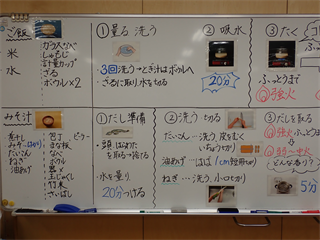 ご飯
米
水
ガラスなべ
しゃもじ
計量カップ
ざる
ボウル×2
①量る 洗う
・3回洗う→とぎ汁はボウルへ
・ざるに取り水を切る
②吸水
20分
③たく
ふっとうまで
強火
みそ汁
煮干し
みそ
だいこん
ねぎ
油あげ
包丁 ピーラー
まな板
なべ
ボウル
玉じゃくし
さいばし
①だし準備
・頭、はらわたを取る→
・水を量り
20分つける
②洗う 切る
だいこん…洗う 皮をむく
いちょう切り
油あげ…はば1cm短冊切り
ねぎ…洗う 小口切り
③だしを取る
強火
5分